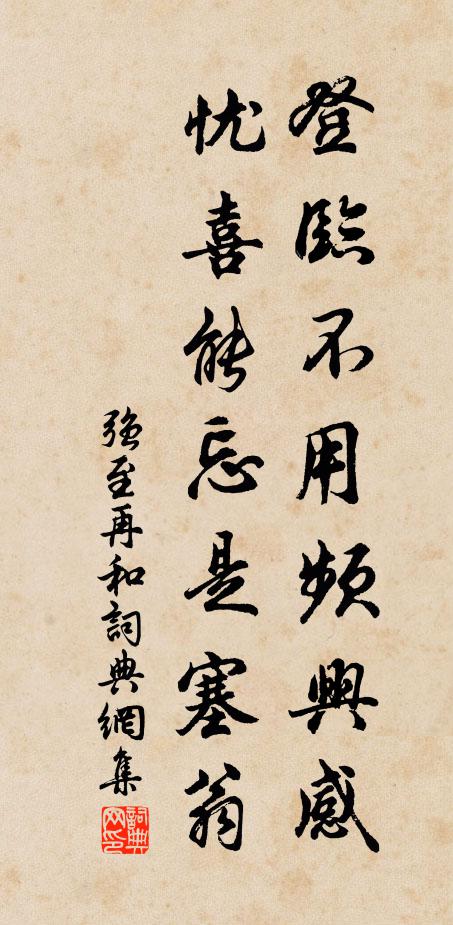 登臨不用頻興感
忧喜能忘是塞翁
强至再和詞典網集
詞典网印